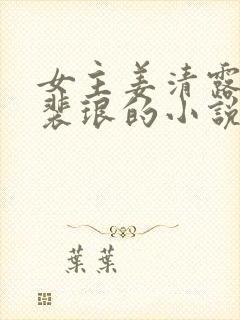 女主姜清露
裴琅的小說
葉葉